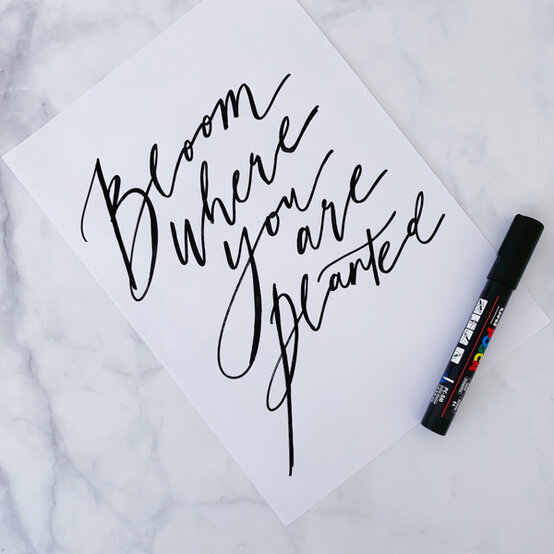 Bloom
where
you
are
planted
POSCA
PC-5M